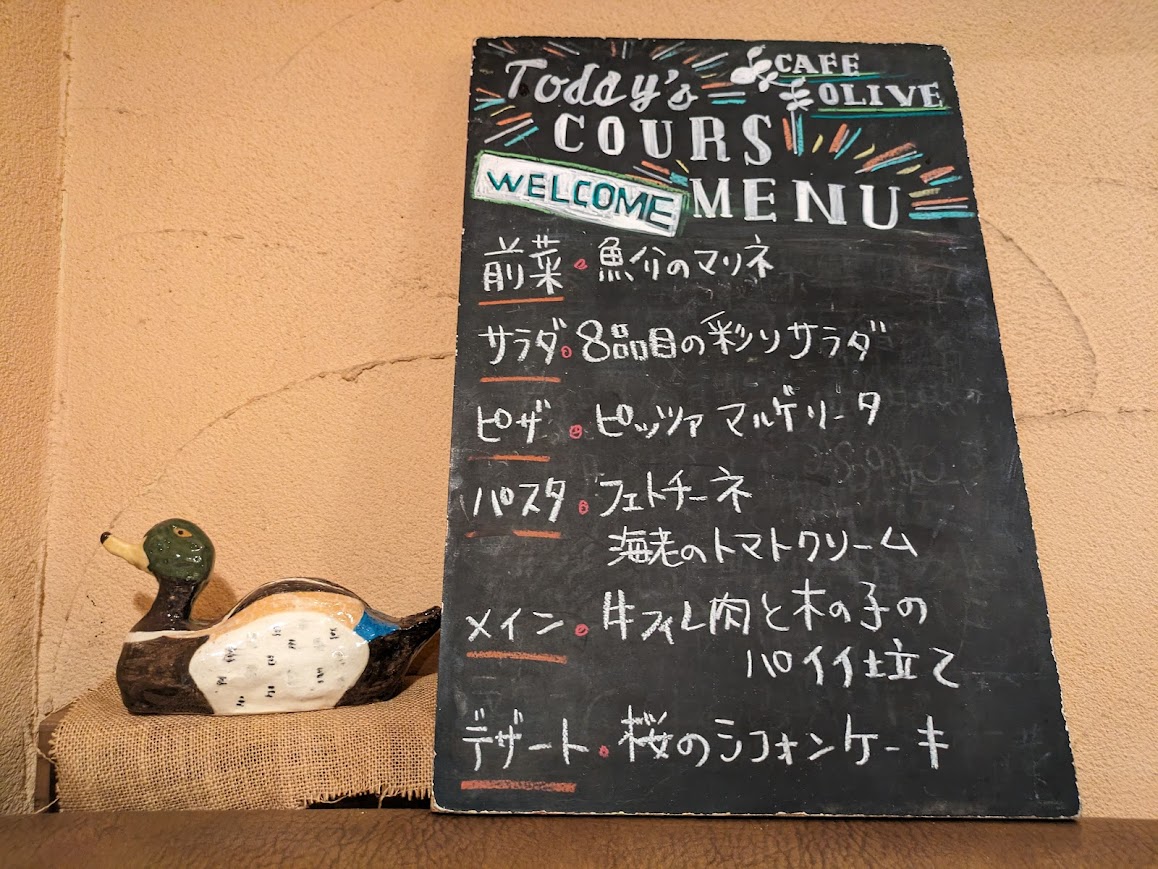 Today's
CAFE
OLIVE
COURS
WELCOME
MENU
前菜・魚介のマリネ
サラダ・8品目の彩りサラダ
ピザ・ピッツァ マルゲリータ
パスタ・フェトチーネ
海老のトマトクリーム
メイン・牛フィレ肉と木の子の
パイ仕立て
デザート・桜のシフォンケーキ